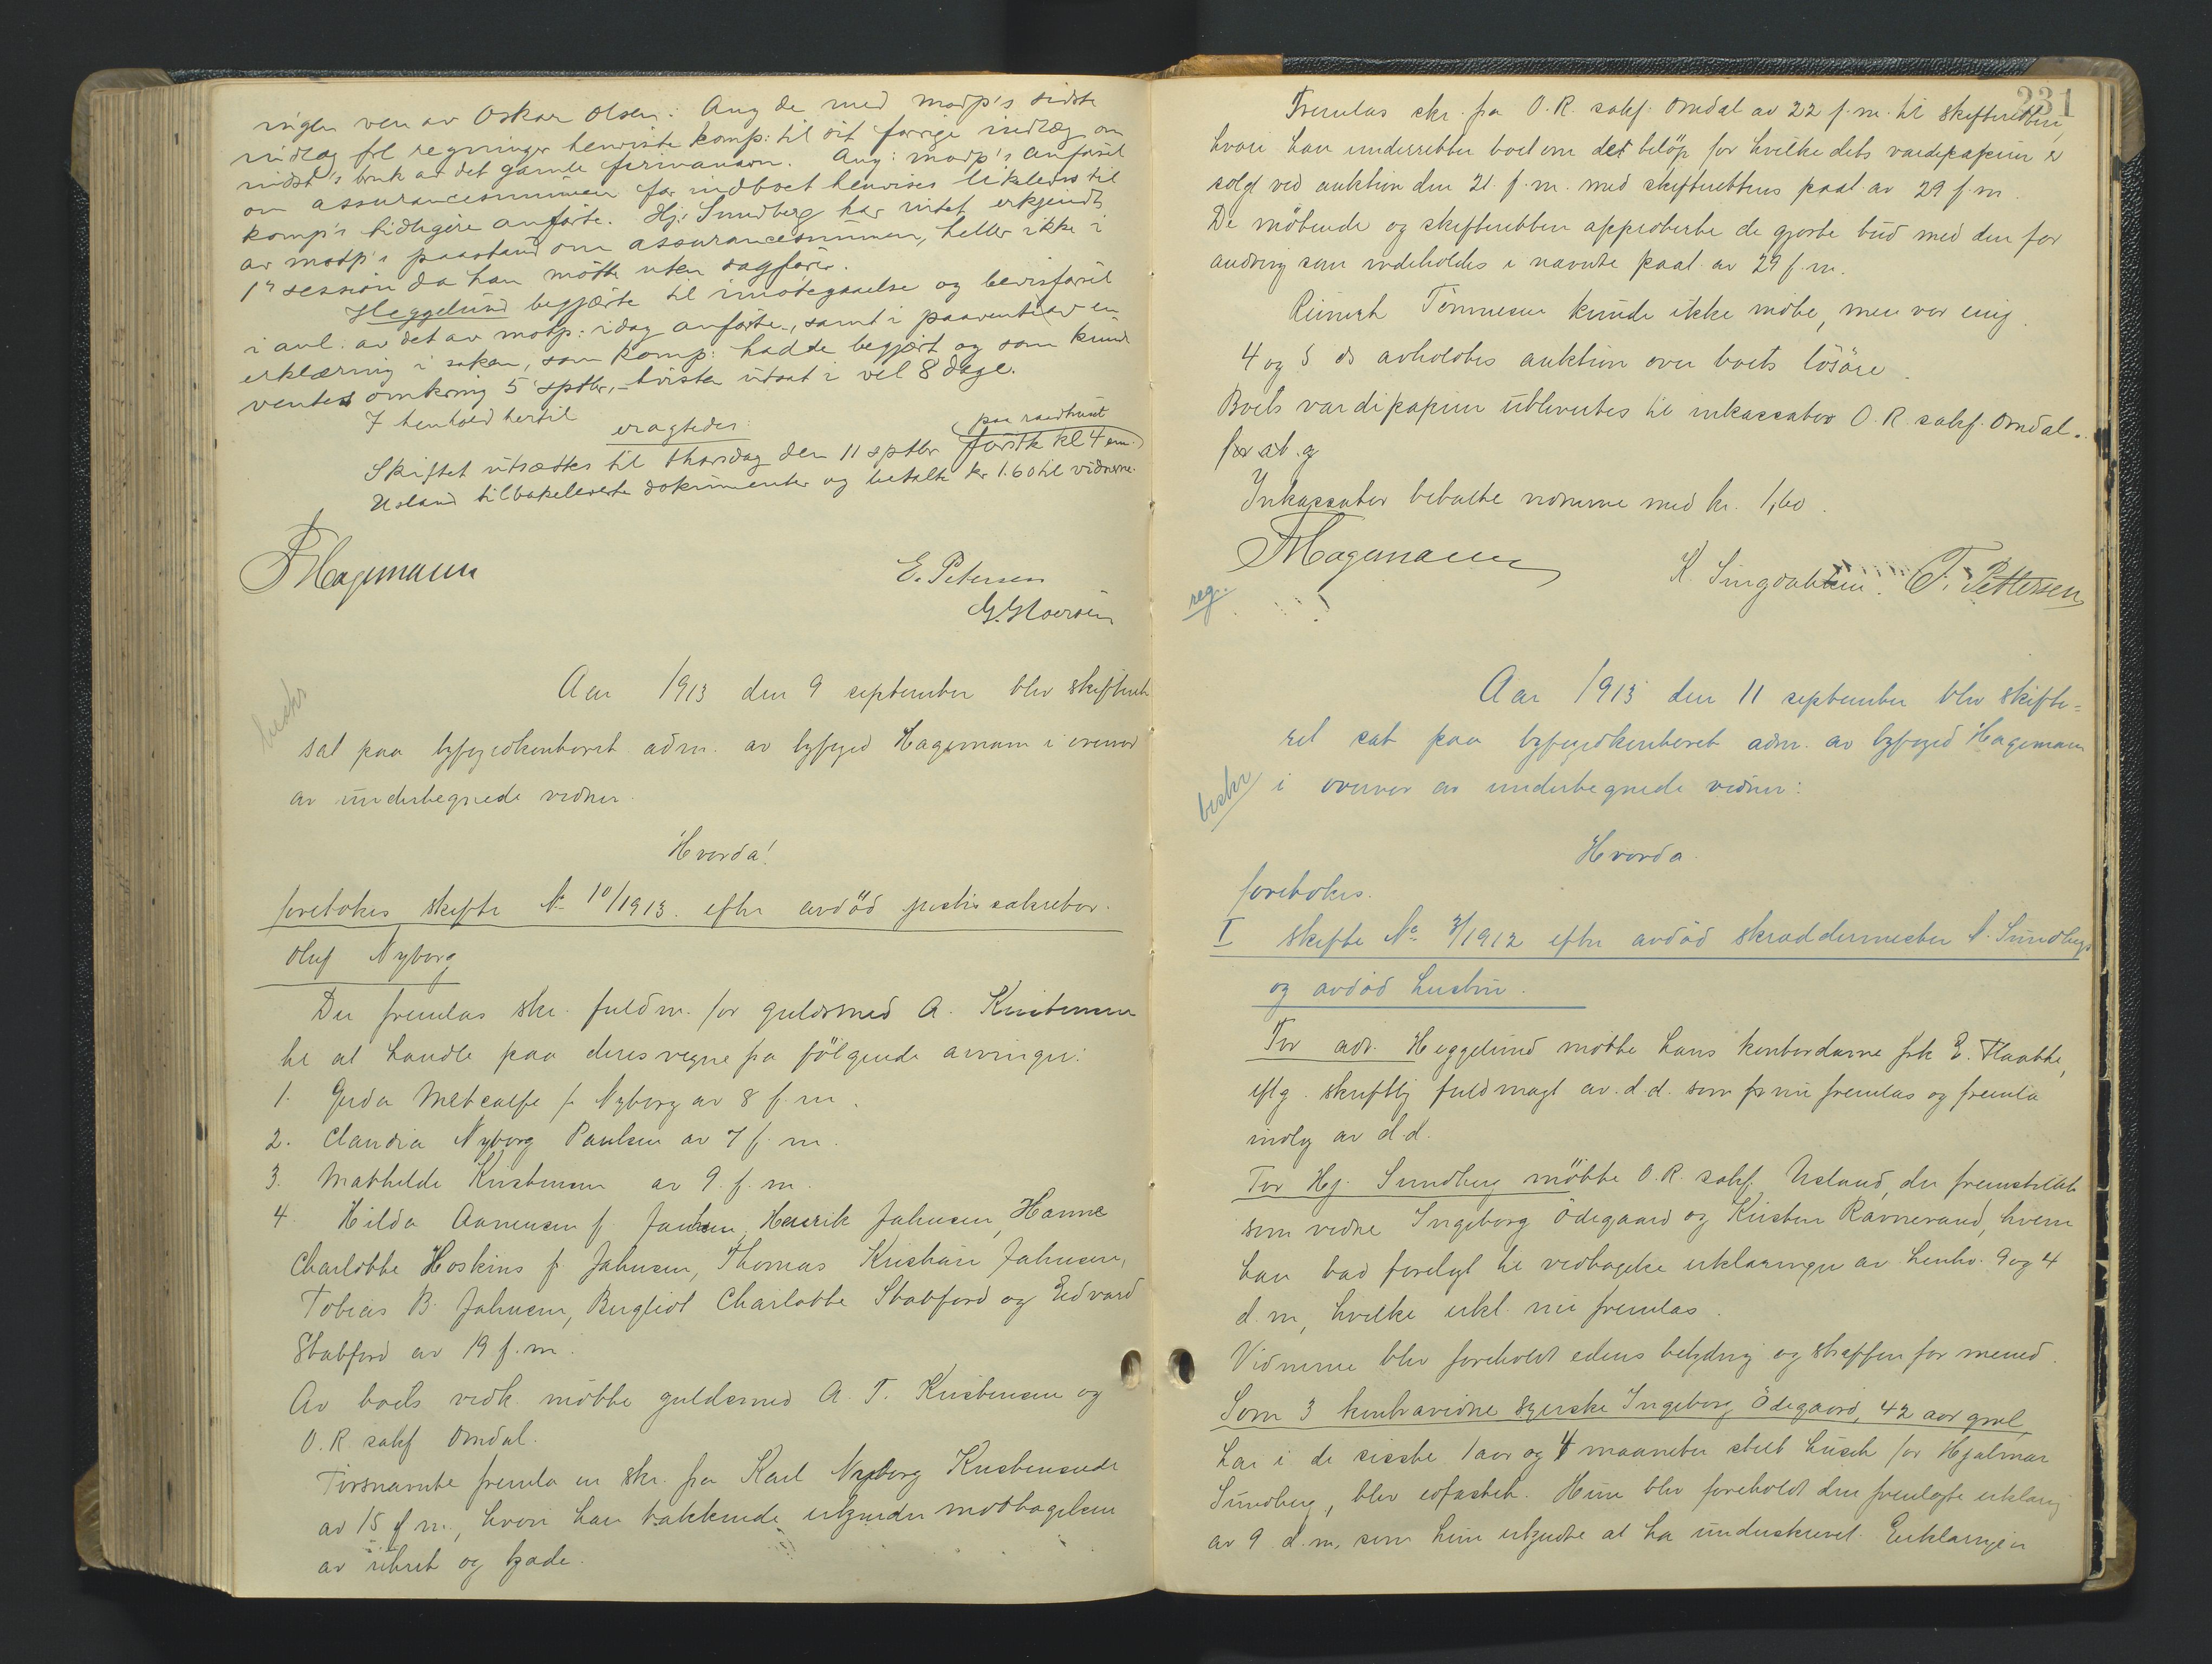 ringen ven av Oskar Olsen. Ang de med modp's sidste
indlæg frl regninger henviste komp: til sit forrige indlæg om
indst's bruk av det gamle firmanavn. Ang: modp's anförsel
om assurancesummen for indboet henvises likeledes til
komp's tidligere anförte. Hj. Sundberg har intet erkjendt
av modp's paastand om assurancesummen, heller ikke i
1ste session da han mötte uten sagförer.
Heggelund begjærte til imötegaaelse og bevisförsel
i anl. av det av motp: idag anförte, samt i paavente av en
erklæring i saken, som komp: hadde begjært og som kunde
ventes omkring 5 sptbr, tvisten utsat i vel 8 dage.
I henhold hertil
eragtedes:
(paa raadhuset
Skiftet utsættes til thorsdag den 11 sptbr förstk kl 4 em.)
Usland tilbakeleverte dokumenter og betalte kr 1.60 til vidnerne.
Hagemann
E. Petersen
beskr
Aar 1913 den 9 september blev skifteret
sat paa byfogedkontoret adm. av byfoged Hagemann i overvær
av undertegnede vidner.
Hvorda!
foretokes skifte No 10/1913. efter avdöd politisekretær
Oluf Nyborg
Der fremlas skr. fuldm. for guldsmed A. Kristensen
til at handle paa deres vegne fra fölgende arvinger:
1. Gerda Metcalfe f. Nyborg av 8 f. m.
2. Claudia Nyborg Paulsen av 7 f. m.
3. Mathilde Kristensen av 9. f. m.
4. Hilda Aanensen f. Jahnsen, Henrik Jahnsen, Hanne
Charlotte Hoskins f. Jahnsen, Thomas Kristian Jahnsen,
Tobias B. Jahnsen, Bergliot Charlotte Stabford og Edvard
Stabford av 19 f. m.
Av boets vedk. mötte guldsmed A. T. Kristensen og
O.R. sakf Omdal.
Förstnævnte fremla en skr. fra Karl Nyborg Kristensen
av 15 f m., hvori han takkende erkjender mottagelsen
av uhret og kjæde.
231
Fremlas skr. fra O.R. sakf. Omdal av 22 f. m. til skifteretten,
hvori han underretter boet om det belöp for hvilke dets værdipapirer er
solgt ved auktion den 21. f. m. med skifterettens paat. av 29 f. m.
De mötende og skifteretten approberte de gjorte bud med den for
andring som indeholdes i nævnte paat. av 29 f. m.
Rinert Tönnesen kunde ikke möte, men var enig.
4 og 5 ds avholdtes auktion over boets lösöre.
Boets værdipapirer utlevertes til inkassator O.R. sakf. Omdal.
Inkassator betalte vidnerne med kr. 1,60.
Hagemann
K. Singdahlsen. T. Pettersen
reg.
Aar 1913 den 11 september blev skifte=
ret sat paa byfogedkontoret adm. av byfoged Hagemann
beskr
i overvær av undertegnede vidner:
Hvorda
foretokes.
I skifte No 3/1912 efter avdöd skræddermester A. Sundberg
og avdöd hustru.
For adv. Heggelund mötte hans kontordame frk E. Flaatte,
iflg. skriftlig fuldmagt av. d. d. som nu fremlas og fremla
indlæg av d. d.
For Hj. Sundberg mötte O.R. sakf. Usland, der fremstillet
som vidne Ingeborg Ödegaard og Kristen Ravnevand, hvem
han bad forelagt til vedtagelse erklæringer av henhv. 9 og 4
d. m, hvilke erkl. nu fremlas.
Vidnerne blev foreholdt edens betydning og straffen for mened.
Som 3 kontravidne syerske Ingeborg Ödegaard, 42 aar gml,
har i de sidste 1 aar og 4 maaneter stelt huset for Hjalmar
Sundberg, blev edfæstet. Hun blev foreholdt den fremlagte erklæring
av 9 d. m, som hun erkjendte at ha underskrevet. Erklæringen